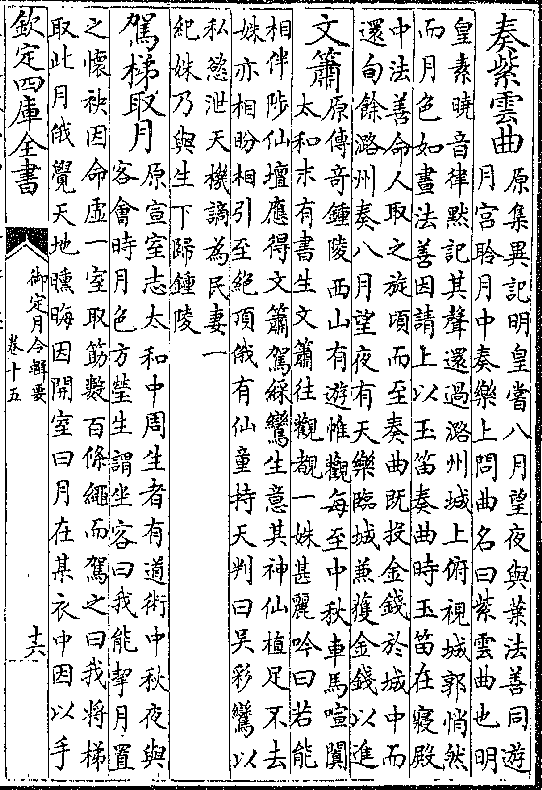 奏紫雲曲 原集異記明皇嘗八月望夜與葉法善同遊
月宮聆月中奏樂上問曲名曰紫雲曲也明
皇素曉音律黙記其聲還過潞州城上俯視城郭悄然
而月色如晝法善因請上以玉笛奏曲時玉笛在寢殿
中法善命人取之旋頃而至奏曲既投金錢於城中而
還旬餘潞州奏八月望夜有天樂臨城兼獲金錢以進
文簫 原傳奇鍾陵西山有遊帷觀每至中秋車馬喧闐
太和末有書生文簫往觀覩一姝甚麗吟曰若能
相伴陟仙壇應得文簫駕綵鸞生意其神仙植足不去
姝亦相盼相引至絶頂俄有仙童持天判曰吳彩鸞以
私慾泄天機謫為民妻一
紀姝乃與生下歸鍾陵
駕梯取月 原宣室志太和中周生者有道術中秋夜與
客會時月色方瑩生謂坐客曰我能挈月置
之懷袂因命虛一室取筯數百條繩而駕之曰我將梯
取此月俄覺天地曛晦因開室曰月在某衣中因以手
欽定四庫全書
御定月令輯要
卷十五
十六